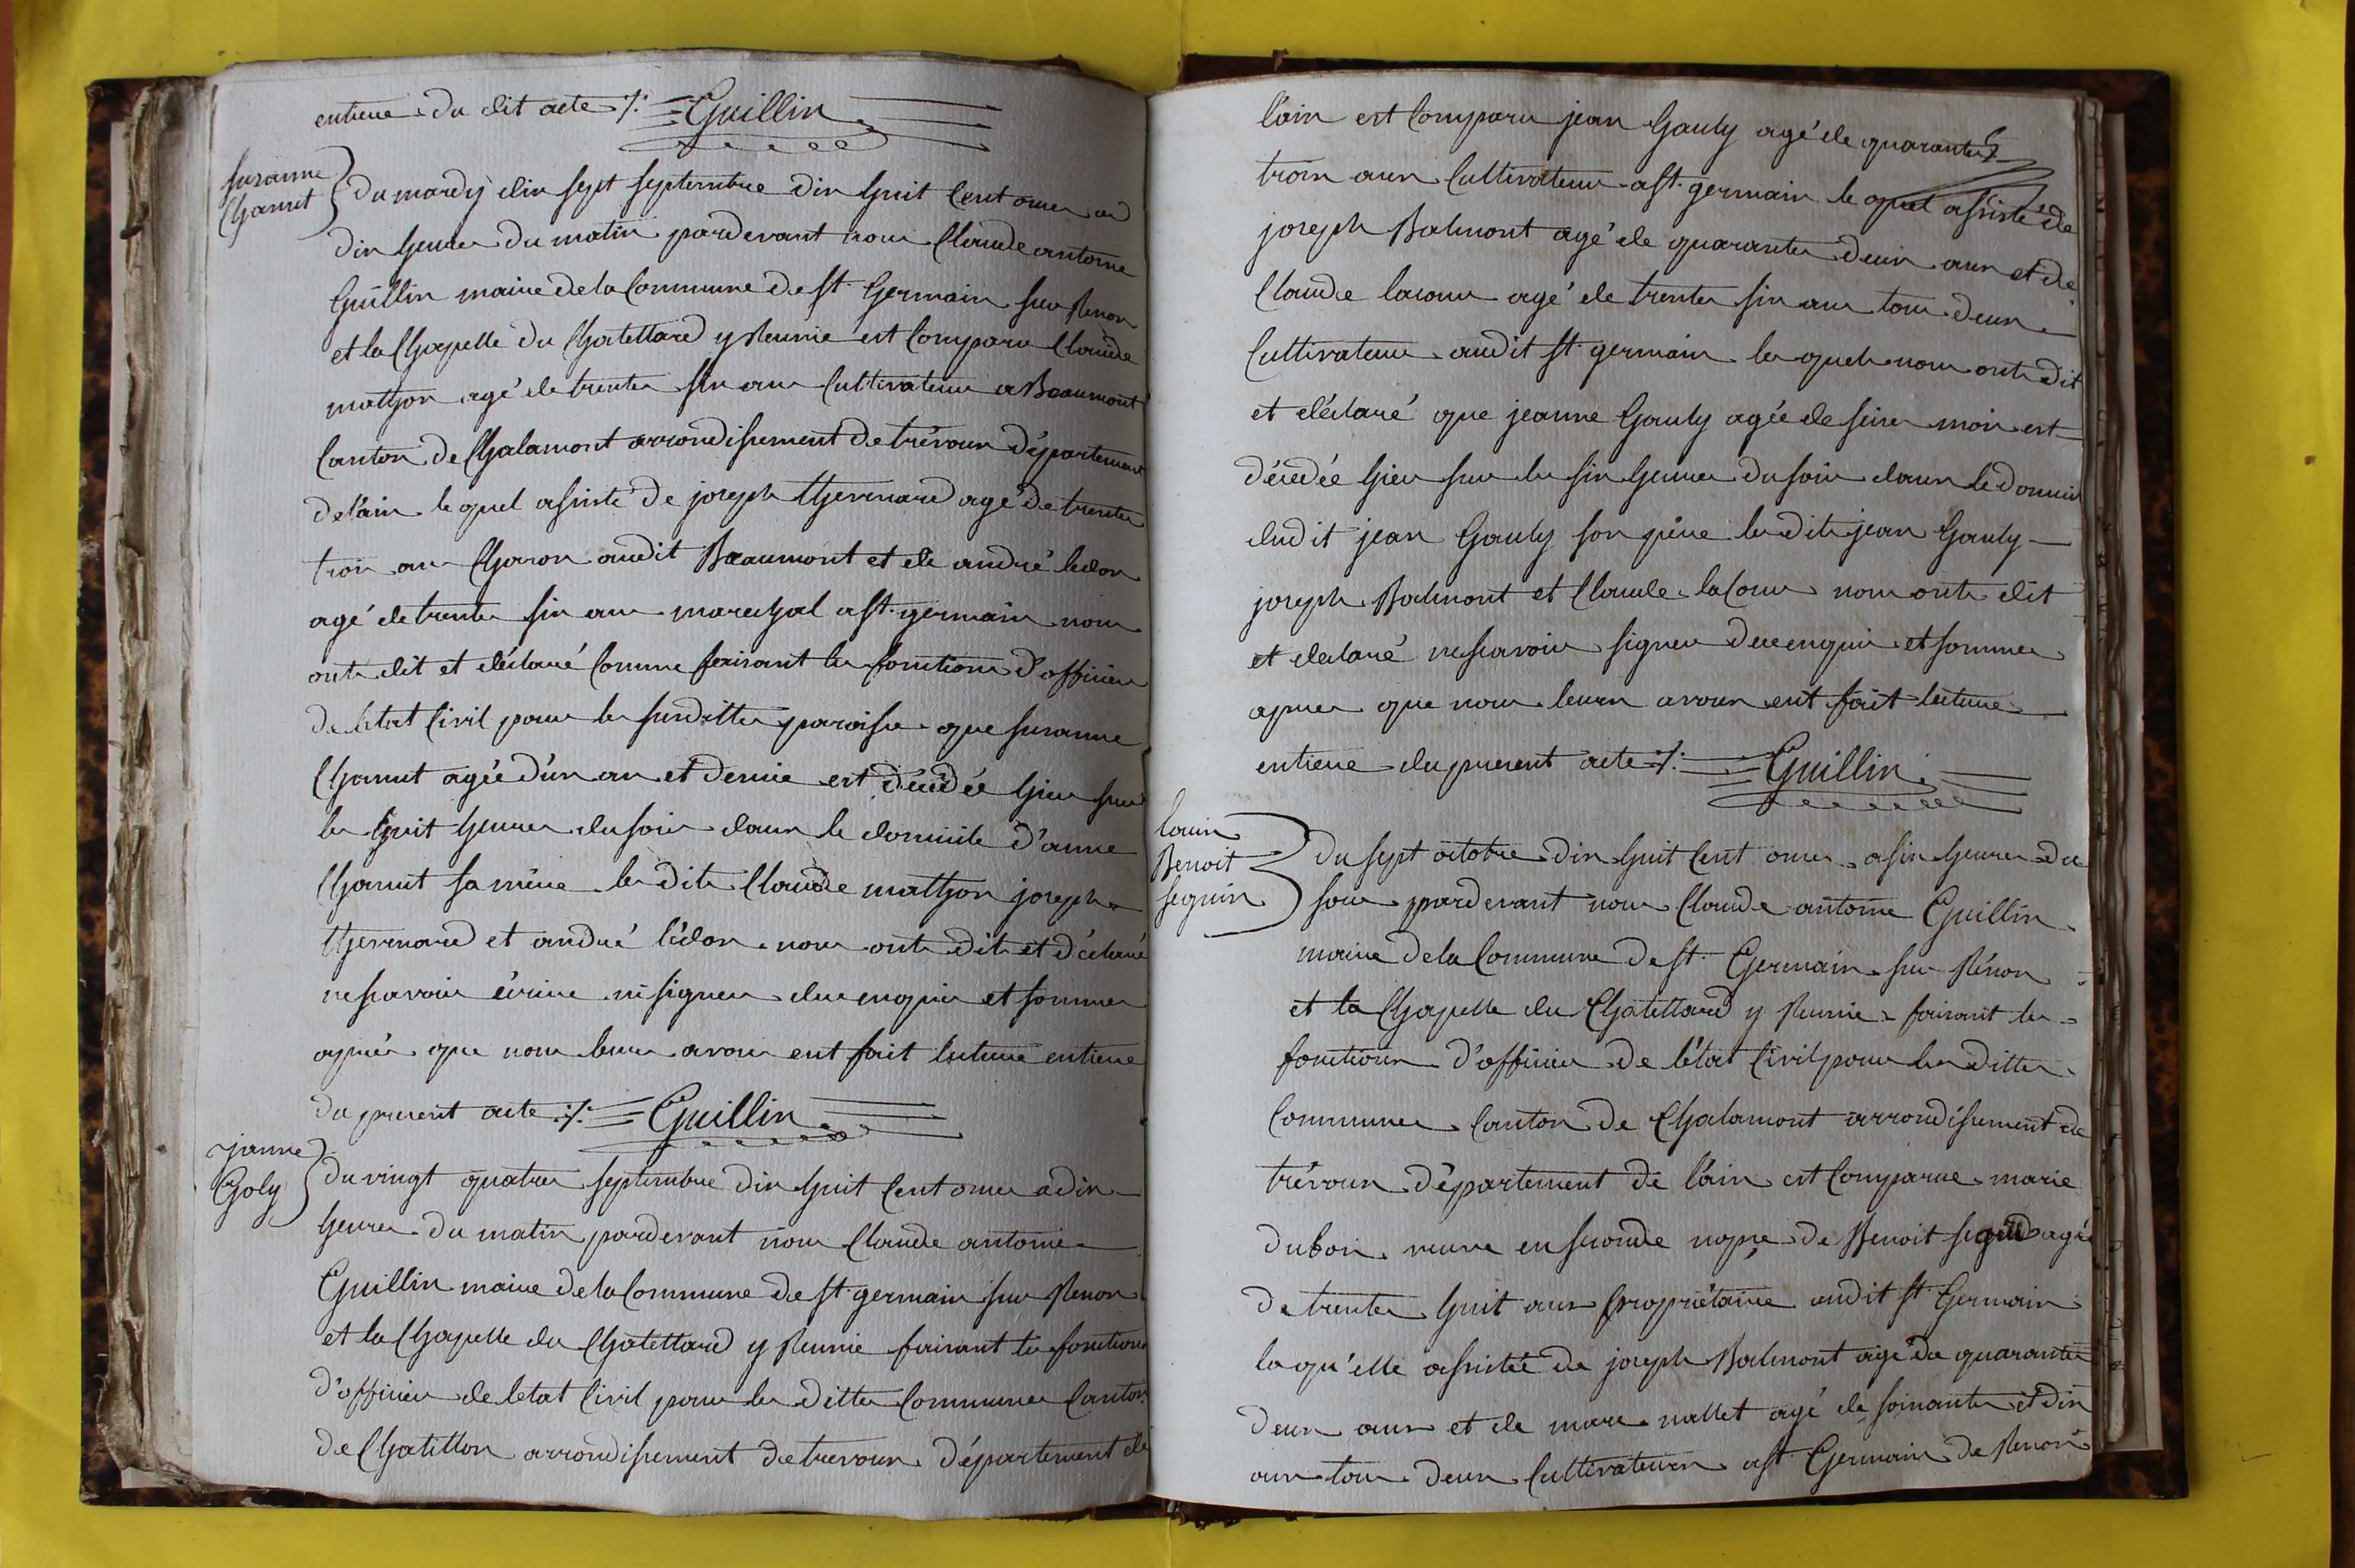 entiere du dit acte ./. Guillin
susanne
Chanut
du mardy dix sept septembre dix huit cent onze a
dix heures du matin pardevant nous Claude antoine
Guillin maire de la Commune de st. Germain sur Renon
et la Chapelle du Chatellard y Reunie est Comparu Claude
mathon agé de trente six ans Cultivateur a Beaumont
Canton de Chalamont arrondissement de trévoux Département
de l'ain le quel assisté de joseph thevenard agé de trente
trois ans Charon audit Beaumont et de andré ledon
agé de trente six ans marechal a st. germain nous
onts dit et déclaré Comme faisant les fonctions d'officier
de letat Civil pour les susdittes paroisse que susanne
Chanut agée d'un an et demie est décédée hier sur
les huit heures du soir dans le domicile d'anne
Chanut sa mère les dits Claude mathon joseph
thevenard et andré lédon nous onts dit et déclaré
ne savoir écrire ni signer de ce enquis et sommes
aprés que nous leurs avons ent fait lecture entiere
du present acte ./. Guillin
janne
Goly
du vingt quatre septembre dix huit Cent onze a dix
heures du matin pardevant nous Claude antoine
Guillin maire de la Commune de st. germain sur Renon
et la Chapelle du Chatellard y Reunie faisant les fonctions
d'officier de letat Civil pour les dittes Communes Canton
de Chatillon arrondissement de trevoux Département de
l'ain est Comparu jean Gauly agé de quarante
trois ans Cultivateur a st. germain le quel assisté de
joseph Balmont agé de quarante deux ans et de
Claude lacour agé de trente six ans tous deux
Cultivateur audit st. germain les quels nous onts dit
et déclaré que jeanne Gauly agée de seize mois est
décedée hier sur les six heures du soir dans le domicil
dudit jean Gauly son père les dits jean Gauly
joseph Balmont et Claude lacour nous onts dit
et declaré ne savoir signer de ce enquis et sommes
apres que nous leurs avons ent fait lecture
entiere du present acte ./. Guillin
louis
Benoit
seguin
du sept octobre dix huit Cent onze a six heures du
soir pardevant nous Claude antoine Guillin
maire de la Commune de st. Germain sur Rénon
et la Chapelle du Chatellard y Reunie faisant les
fonctions d'officier de l'état Civil pour les dittes
Communes Canton de Chalamont arrondissement de
trévoux Département de l'ain est Comparue marie
dubois veuve en seconde nopse de Benoit agée
de trente huit ans propriétaire audit st. Germain
la qu'elle assistée de joseph Balmont agé de quarante
deux ans et de marc nallet agé de soixante et dix
ans tous deux Cultivateurs a st. Germain de Renon